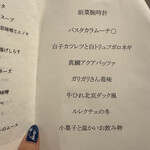 前菜腕時計
パスタカラムーチ〇
白子カツレツと白トリュフボロネギ
真鯛アクアパッツァ
ガリガリさん苺味
牛ひれ北京ダック風
ルレクチェの冬
小菓子と温かいお飲み物